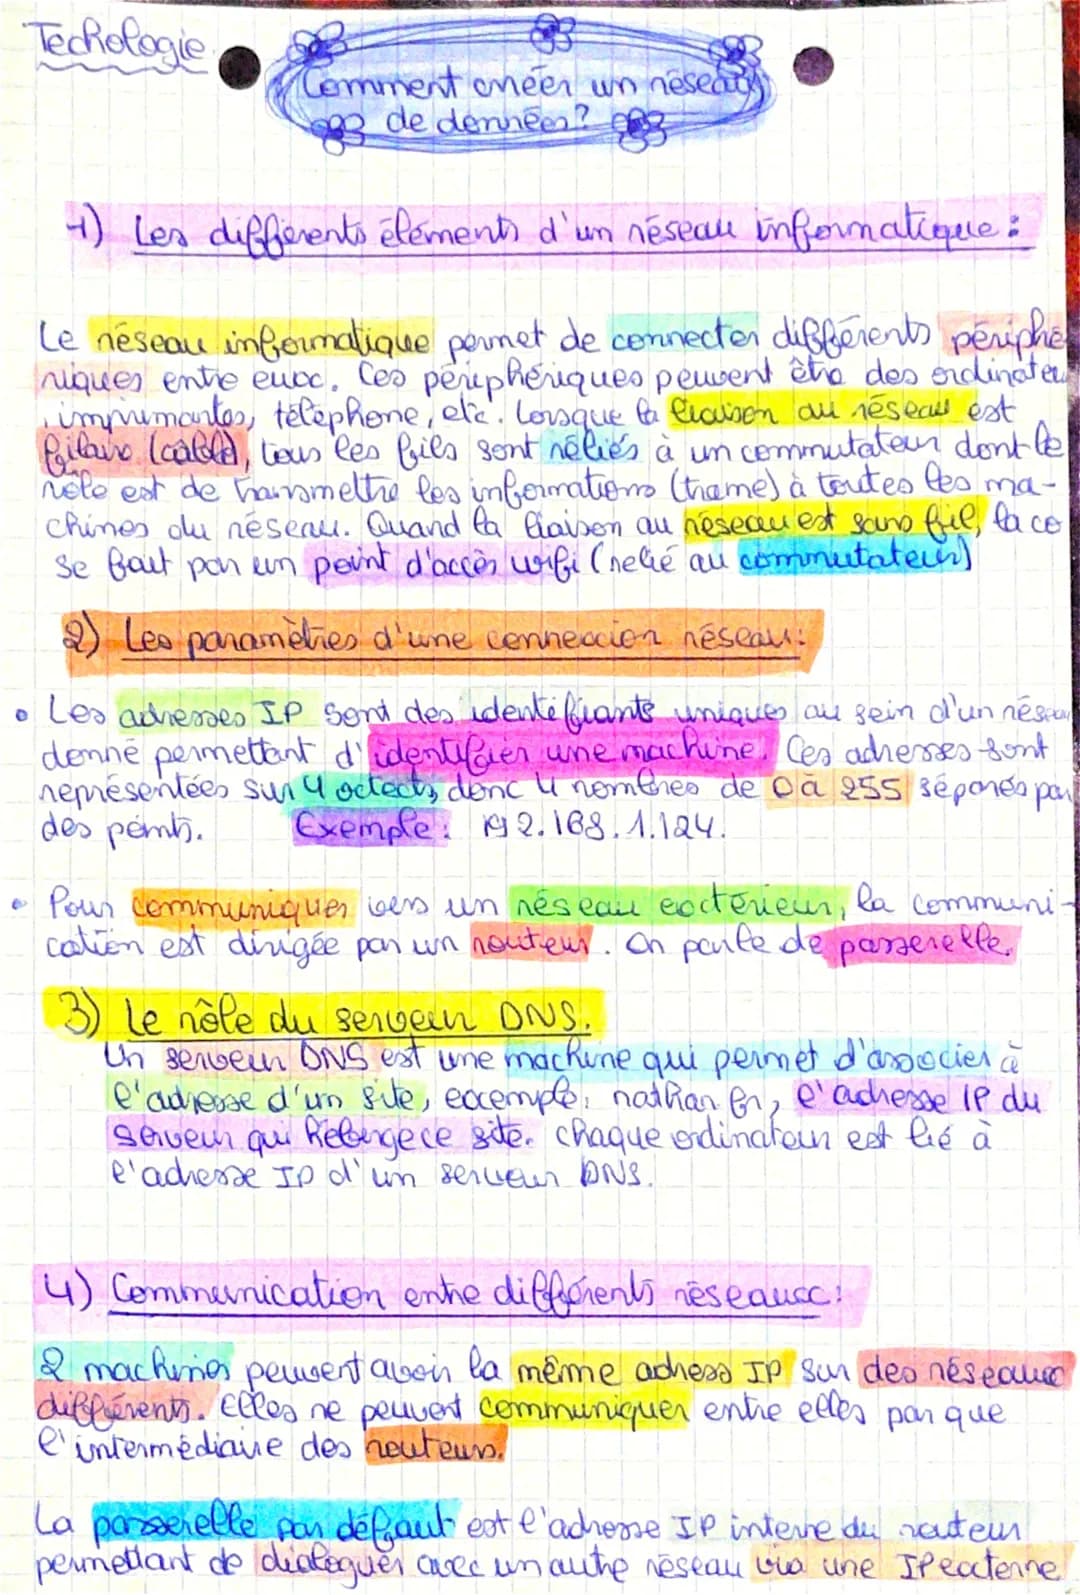 Techologie
Comment créer un réseau
de données?
1) Les différents éléments d'un réseau informatique :
Le réseau informatique permet de connecter différents périphé-
riques entre eux. Ces périphériques peuvent être des ordinateu
, imprimantes, téléphone, etc. Lorsque la liaison au réseau est
filaire (câble), tous les fils sont réliés à un commutateur dont le
rôle est de transmettre les informations (trame) à toutes les ma-
chines du réseau. Quand la liaison au réseau est sans fil, la co
se fait par un point d'accès wifi (relié au commutateur)
2) Les paramètres d'une conneccion réseau:
• Les adresses IP sont des identifiants uniques au sein d'un réseau
donné permettant d'identifier une machine. Ces adresses sont
représentées sur 4 octects, donc 4 nombres de 0 à 255 séparés par
des points. Exemple: 192.168.1.124.
• Pour communiquer vers un réseau extérieur, la communi-
cation est dirigée par un routeur. On parle de passerelle.
3) Le rôle du serveur DNS.
Un serveur DNS est une machine qui permet d'associer à
l'adresse d'un site, exemple, nathan.fr, l'adresse IP du
serveur qui héberge ce site. Chaque ordinateur est lié à
l'adresse IP d'un serveur DNS.
4) Communication entre différents réseaux:
2 machines peuvent avoir la même adress IP sur des réseaux
différents. Elles ne peuvent communiquer entre elles par que
l'intermédiaire des routeurs.
La passerelle par défaut est l'adresse IP interne du routeur
permettant de dialoguer avec un autre réseau via une IP externe